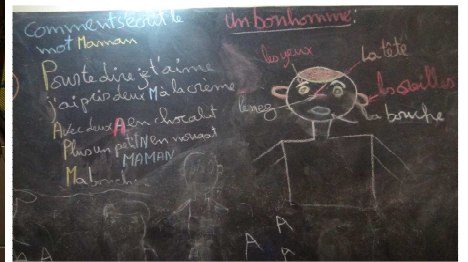 Comment s'écrit le
mot Maman
Pour te dire je t'aime
j'ai pris deux M à la crème
Avec deux A en chocolat
Plus un petit N en nougat
MAMAN
Ma bouche
Un bonhomme:
les yeux
La tête
le nez
les oreilles
La bouche
A
A
A
A A